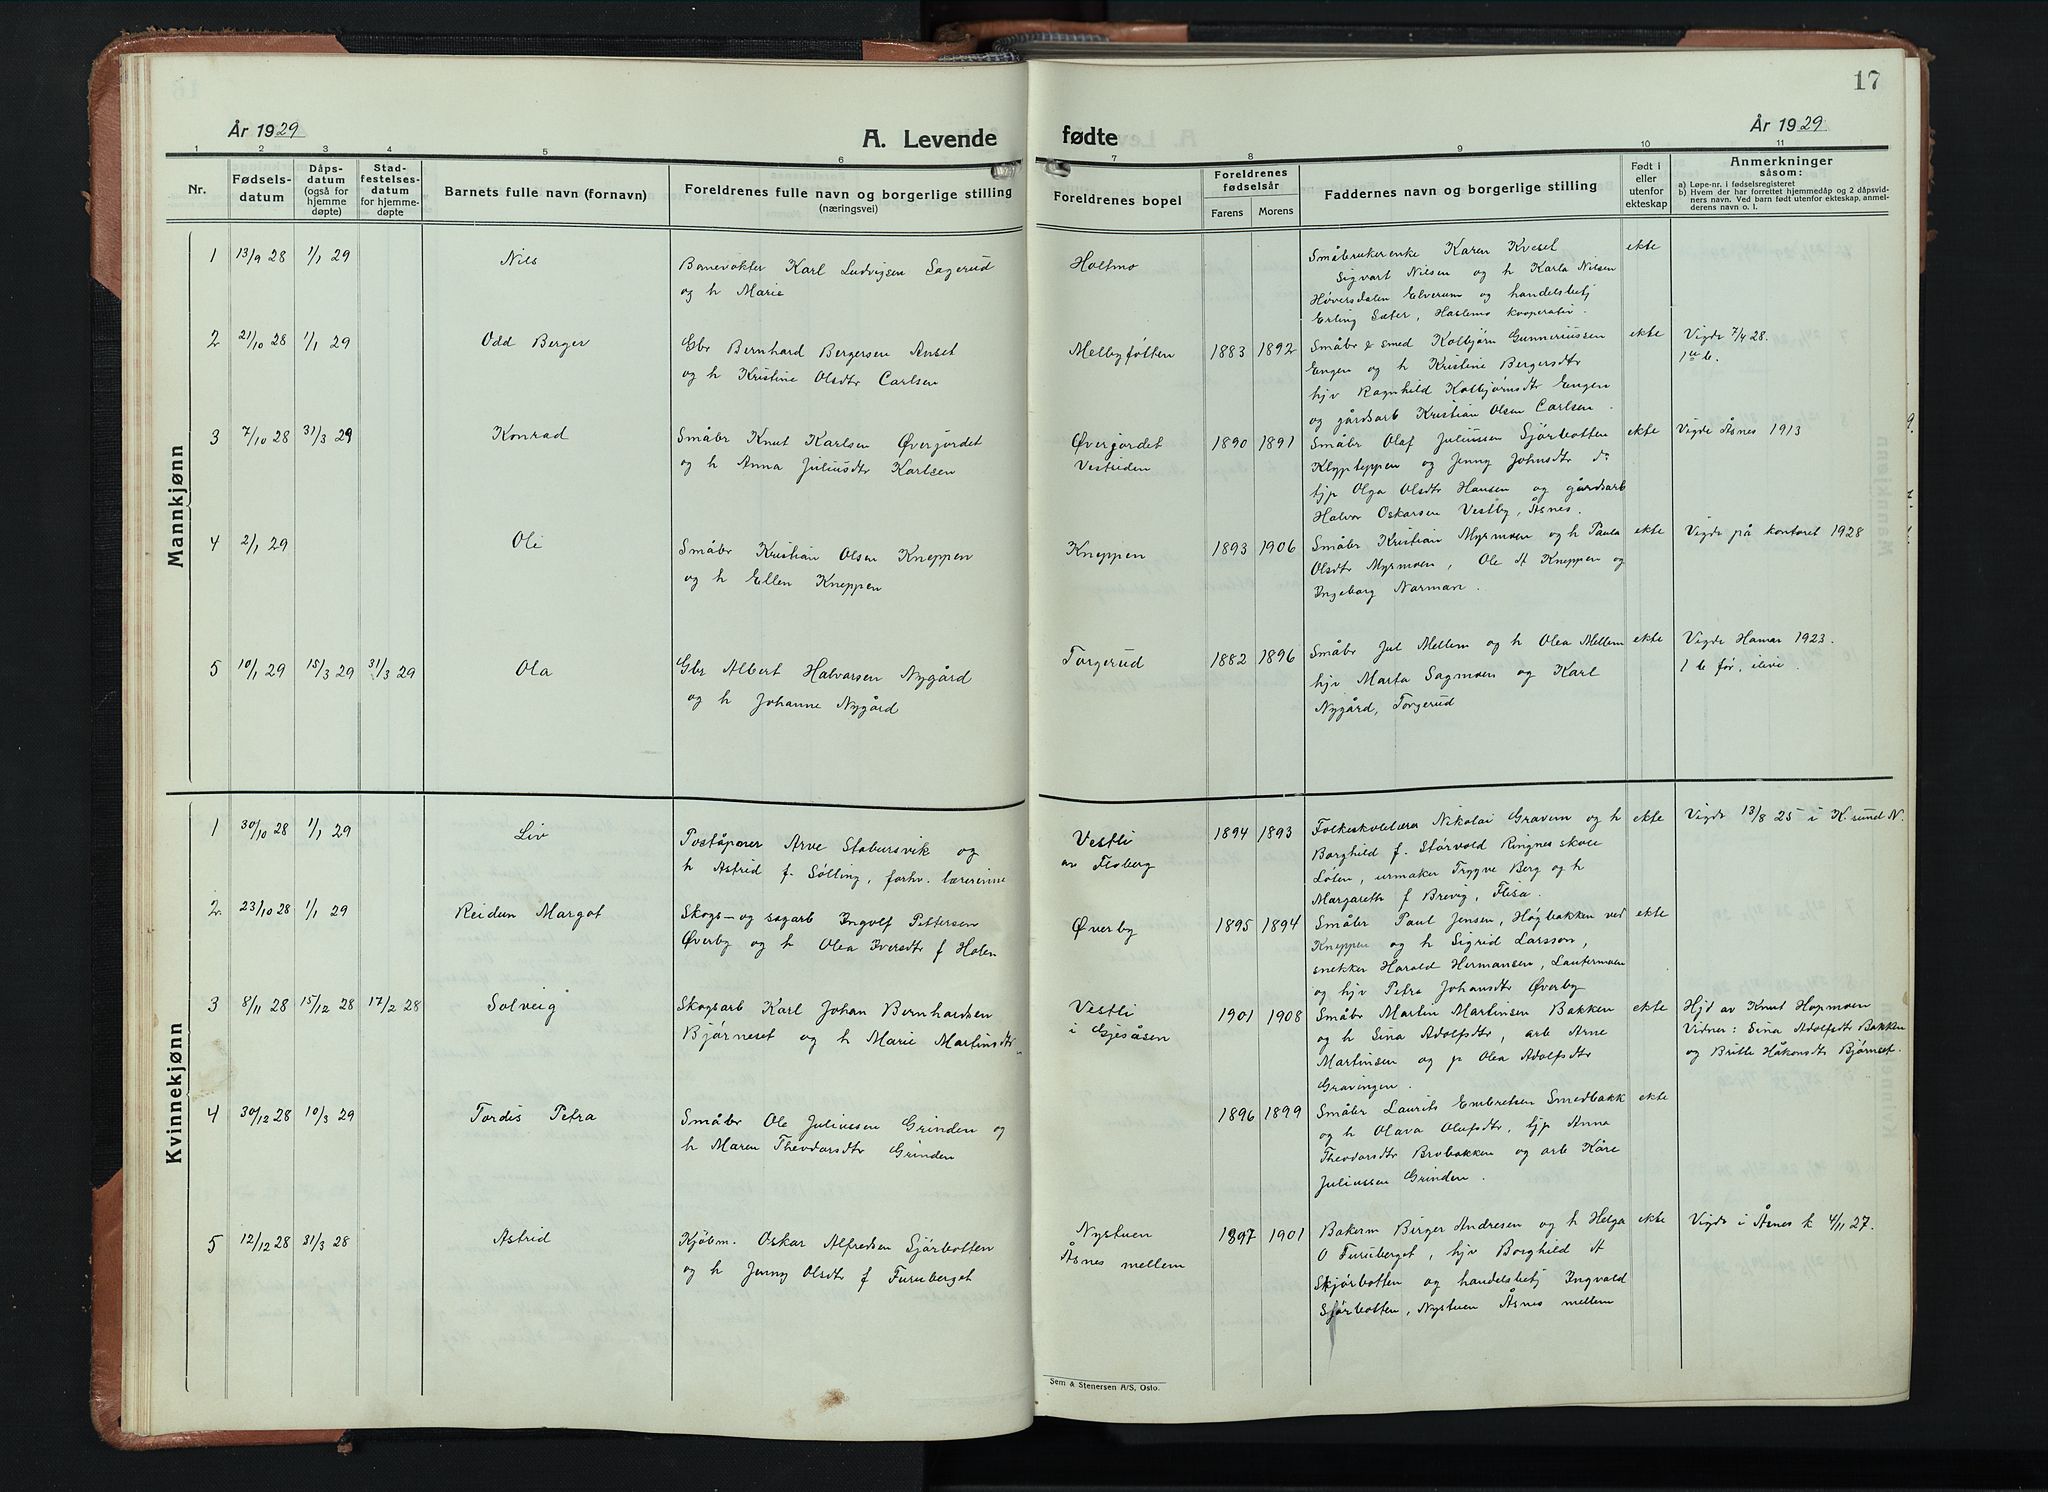 17
År 1929
A. Levende
fødte
År 1929
1 2 3 4 5 6 7 8 9 10 11
Nr.
Fødsels-
datum
Dåps-
datum
(også for
hjemme
døpte)
Stad-
festelses-
datum
for hjemme-
døpte
Barnets fulle navn (fornavn)
Foreldrenes fulle navn og borgerlige stilling
(næringsvei)
Foreldrenes bopel
Foreldrenes
fødselsår
Farens Morens
Faddernes navn og borgerlige stilling
Født i
eller
utenfor
ekteskap
Anmerkninger
såsom:
a) Løpe-nr. i fødselsregisteret
b) Hvem der har forrettet hjemmedåp og 2 dåpsvid-
ners navn. Ved barn født utenfor ekteskap, anmel-
derens navn o. l.
Mannkjønn
1 13/9 28 1/1 29 Nils
Banevokter Karl Ludvigsen Sagerud
og h Marie
Holtmo
Småbrukerenke Karen Kveset
Sigvart Nilsen og h Karla Nilsen
Høversdalen Elverum og handelsbetj
Erling Sæter, Haslemo kooperativ.
ekte
2 21/10 28 1/1 29 Odd Berger
Gbr Bernhard Bergersen Anset
og h Kristine Olsdtr Carlsen
Melbyføtten 1883 1892
Småbr & smed Kolbjørn Gunneriussen
Engen og h Kristine Bergersdtr
hjv Ragnhild Kolbjørnsdtr Engen
og gårdsarb Kristian Olsen Carlsen.
ekte
Vigde 7/4 28.
3 7/10 28 31/3 29 Konrad
Småbr Knut Karlsen Øvergjordet
og h Anna Juliusdtr Karlsen
Øvergjordet
Vestsiden
1890 1891
Småbr Olaf Juliussen Sjørbotten
Klypteppen og Jenny Johnsdtr do
tjp Olga Olsdtr Hansen og gårdsarb
Halvor Oskarsen Vestby, Åsnes.
ekte
Vigde Åsnes 1913
4 2/1 29 Ole
Småbr Kristian Olsen Kneppen
og h Ellen Kneppen
Kneppen 1893 1906
Småbr Kristian Myrmoen og h Paula
Olsdtr Myrmoen, Ole A Kneppen og
Ingeborg Norman.
ekte
Vigde på kontoret 1928
5 10/1 29 15/3 29 31/3 29 Ola
Gbr Albert Halvorsen Nygård
og h Johanne Nygård
Torgerud 1882 1896
Småbr Jul Mellem og h Olea Mellem
hjv Marta Sagmoen og Karl
Nygård, Torgerud
ekte
Vigde Hamar 1923.
1 b før, ilive.
Kvinnekjønn
1 30/10 28 1/1 29 Liv
Poståpner Arve Stabursvik og
h Astrid f. Sølling, forhv. lærerinne
Vestli
av Floberg
1894 1893
Folkeskolelærer Nikolai Gravem og h
Borghild f. Størvold Ringnes skole
Løten, urmaker Trygve Berg og h
Margareth f Brevig, Flisa.
ekte
Vigde 13/8 25 i K.sund N.
2 23/10 28 1/1 29 Reidun Margot
Skogs- og sagarb Ingolf Pettersen
Øverby og h Olea Iversdtr f Holen
Øverby 1895 1894
Småbr Paul Jensen, Høgbakken ved
Kneppen og h Sigrid Larsson,
snekker Harald Hermansen, Lautermoen
og hjv Petra Johansdtr Øverby
ekte
3 8/11 28 15/12 28 17/2 28 Solveig
Skogsarb Karl Johan Bernhardsen
Bjørneset og h Marie Martinsdtr
Vestli
i Gjesåsen
1901 1908
Småbr Martin Martinsen Bakken
og h Sina Adolfsdtr, arb Arne
Martinsen og p Olea Adolfsdtr
Gravingen.
ekte
Hjd av Knut Hopmoen
Vidner: Sina Adolfsdtr Bakken
og Britte Håkonsdtr Bjørnset.
4 30/12 28 10/3 29 Tordis Petra
Småbr Ole Juliussen Grinden og
h Maren Theodorsdtr Grinden
1896 1899
Småbr Laurits Embretsen Smedbakk
og h Olava Olufsdtr, tjp Anna
Theodorsdtr Brobakken og arb Kåre
Juliussen Grinden.
ekte
5 12/12 28 31/3 28 Astrid
Kjøbm. Oskar Alfredsen Sjørbotten
og h Jenny Olsdtr f Furuberget
Nystuen
Åsnes mellem
1897 1901
Bakerm Birger Andresen og h Helga
O Furuberget, hjv Borghild A
Skjørbotten og handelsbetj Ingvald
Sjørbotten, Nystuen Åsnes mellem
ekte
Vigde i Åsnes k 4/11 27.
Sem & Stenersen A/S, Oslo.